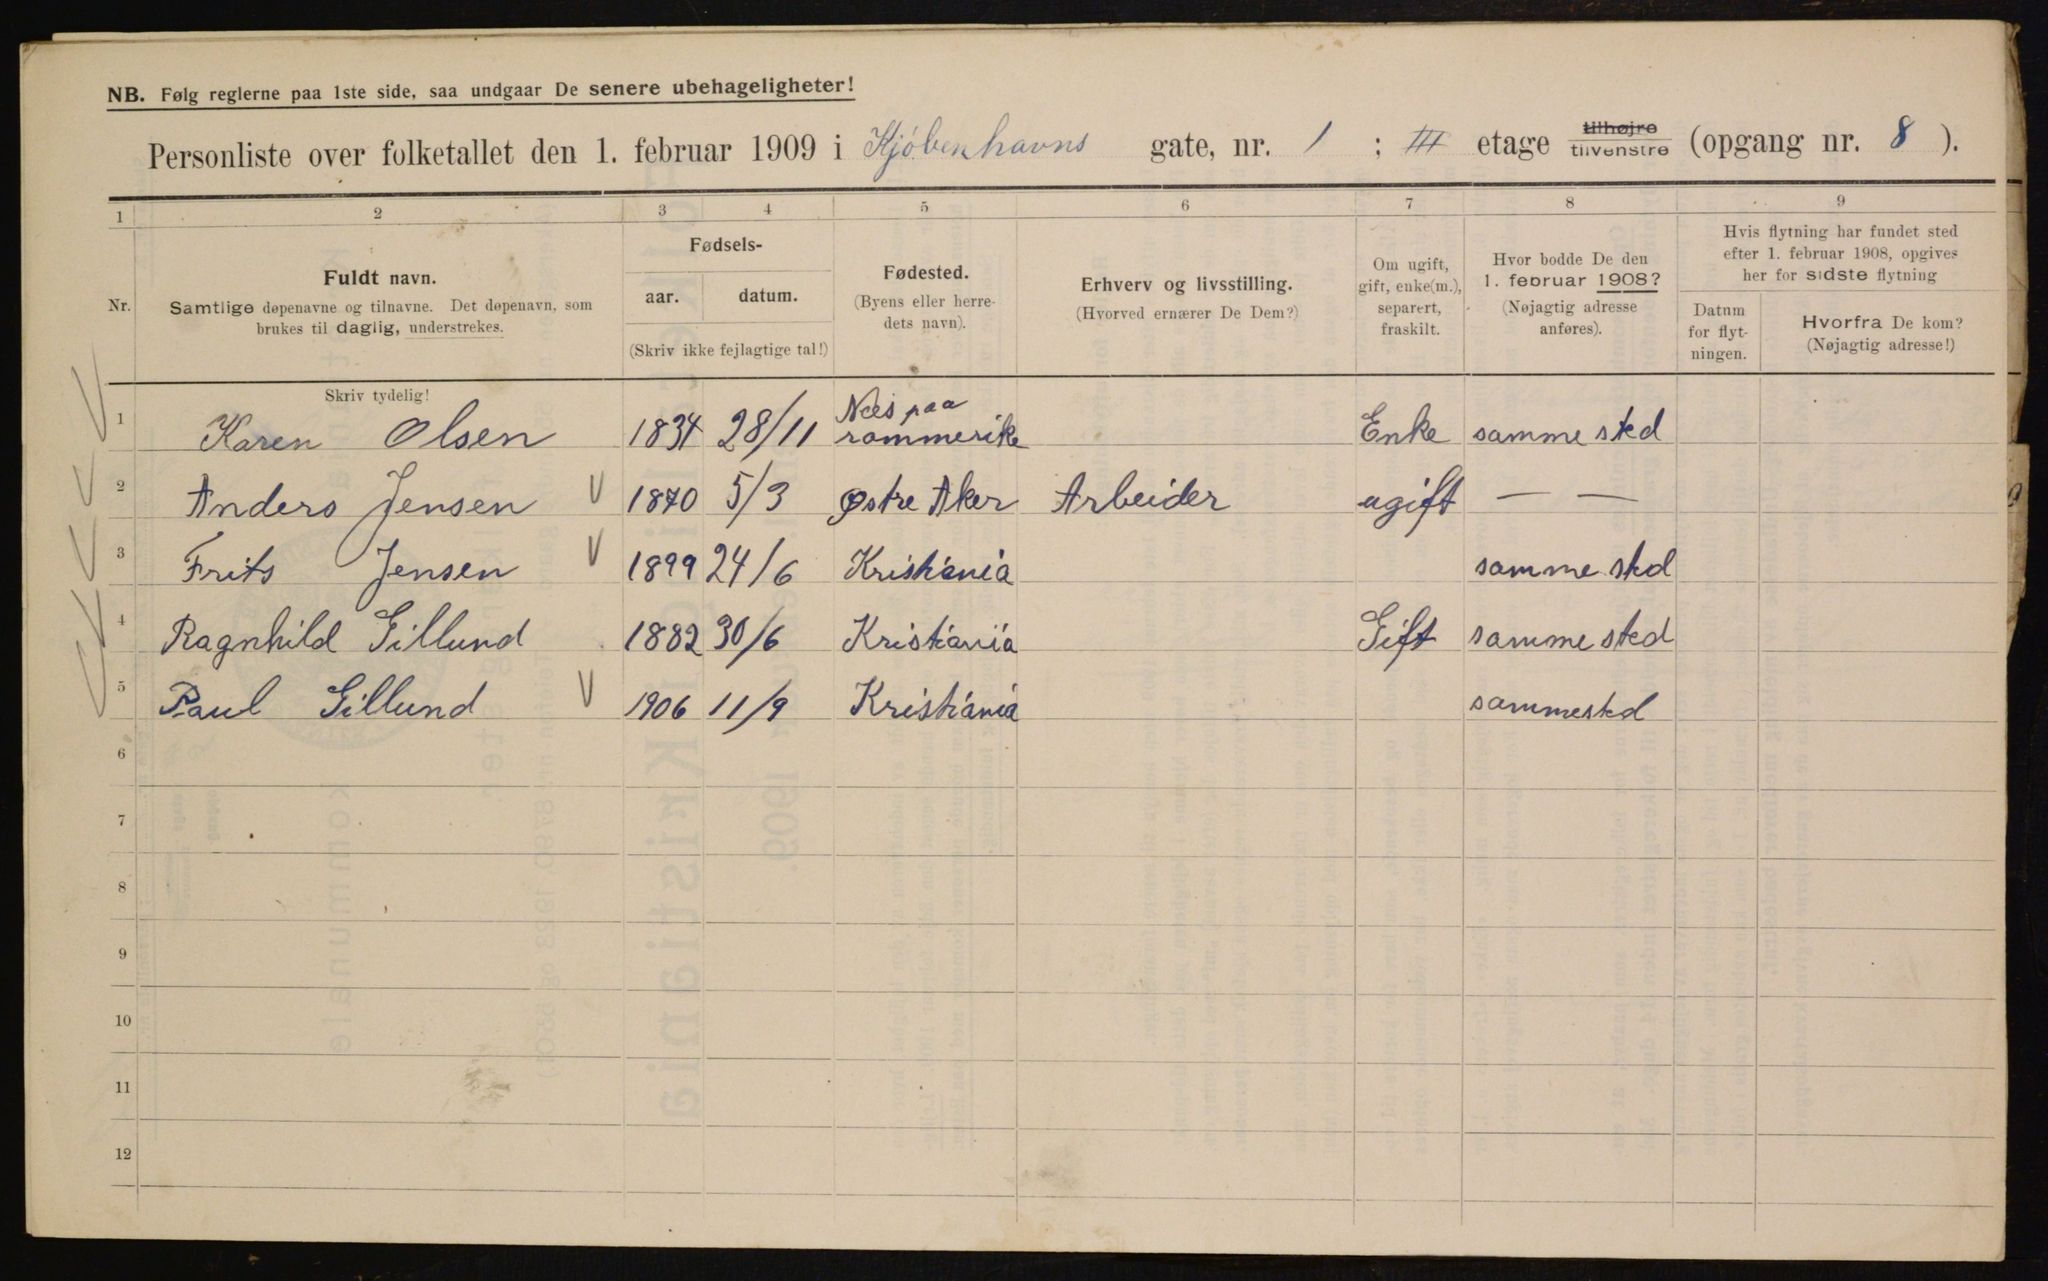 NB. Følg reglerne paa 1ste side, saa undgaar De senere ubehageligheter!
Personliste over folketallet den 1. februar 1909 i Kjøbenhavns gate, nr. 1 ; III etage tilhøjre tilvenstre (opgang nr. 8 ).
1 2 3 4 5 6 7 8 9
Nr.
Fuldt navn.
Samtlige døpenavne og tilnavne. Det døpenavn, som
brukes til daglig, understrekes.
Fødsels-
aar. datum.
(Skriv ikke fejlagtige tal!)
Fødested.
(Byens eller herre-
dets navn).
Erhverv og livsstilling.
(Hvorved ernærer De Dem?)
Om ugift,
gift, enke(m.),
separert,
fraskilt.
Hvor bodde De den
1. februar 1908?
(Nøjagtig adresse
anføres).
Hvis flytning har fundet sted
efter 1. februar 1908, opgives
her for sidste flytning
Datum
for flyt-
ningen.
Hvorfra De kom?
(Nøjagtig adresse!)
Skriv tydelig!
1 Karen Olsen 1834 28/11 Nes paa
rommerike Enke samme sted
2 Anders Jensen V 1870 5/3 Østre Aker Arbeider ugift — —
3 Frits Jensen V 1899 24/6 Kristiania samme sted
4 Ragnhild Gillund 1882 30/6 Kristiania Gift samme sted
5 Paul Gillund V 1906 11/9 Kristiania sammested
6
7
8
9
10
11
12